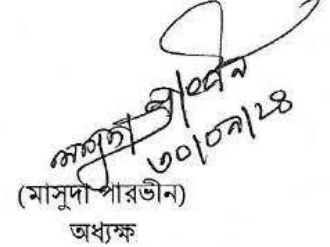 মাসুদা পারভীন
৩০/০৯/২৪
(মাসুদা পারভীন)
অধ্যক্ষ